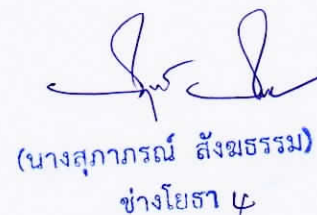 (นางสุภาภรณ์ สังฆธรรม)
ช่างโยธา 4